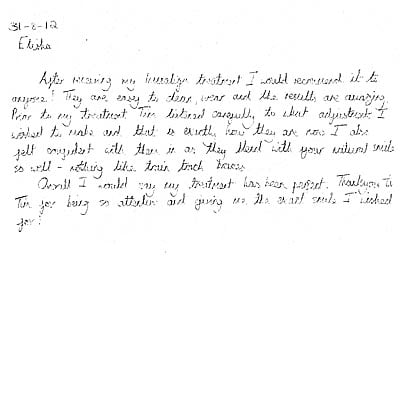 31-8-12
Elisha
After receiving my Invisalign treatment I would recommend it to
anyone! They are easy to clean, wear and the results are amazing.
Prior to my treatment Tim listened carefully to what adjustments I
wished to make and that is exactly how they are now. I also
felt confident with them in as they blend with your natural smile
so well - nothing like train track braces.
Overall I would say my treatment has been perfect. Thankyou to
Tim for being so attentive and giving me the exact smile I wished
for!